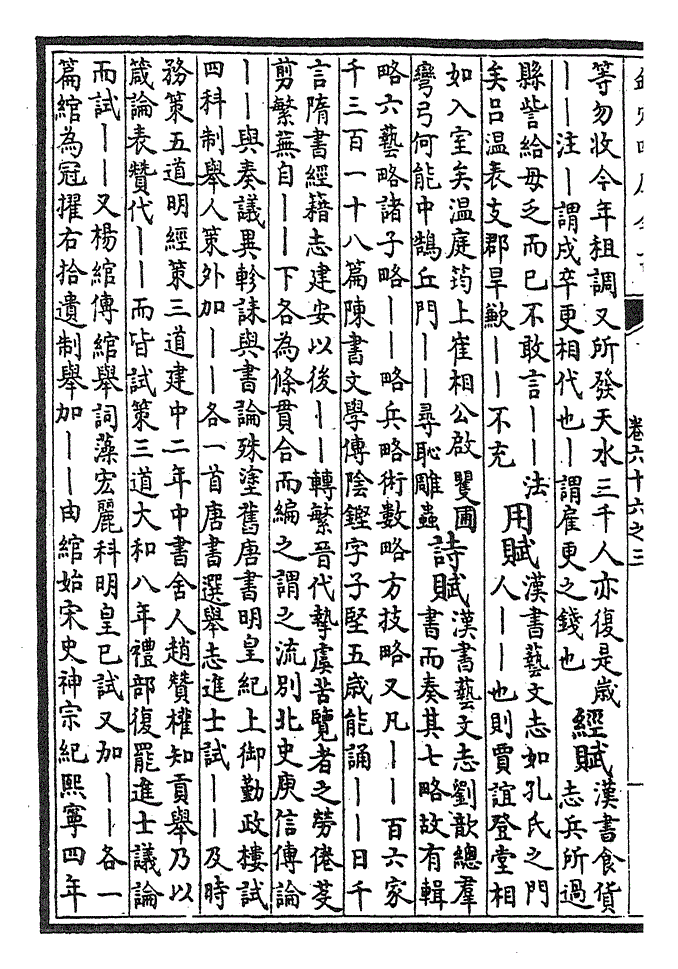 卷六十六之三
等勿收今年租調又所發天水三千人亦復是歲
丨丨注丨謂戍卒更相代也丨謂雇更之錢也
經賦
漢書食貨
志兵所過
縣訾給毋乏而已不敢言丨丨法
矣吕温表支郡旱歉丨丨不充
用賦
漢書藝文志如孔氏之門
人丨丨也則賈誼登堂相
如入室矣温庭筠上崔相公啟矍圃
彎弓何能中鵠丘門丨丨尋恥雕蟲
詩賦
漢書藝文志劉歆總羣
書而奏其七略故有輯
略六藝略諸子略丨丨略兵略術數略方技略又凡丨丨百六家
千三百一十八篇陳書文學傳陰鏗字子堅五歲能誦丨丨日千
言隋書經籍志建安以後丨丨轉繁晉代摯虞苦覽者之勞倦芟
剪繁蕪自丨丨下各為條貫合而編之謂之流别北史庾信傳論
丨丨與奏議異軫誄與書論殊塗舊唐書明皇紀上御勤政樓試
四科制舉人策外加丨丨各一首唐書選舉志進士試丨丨及時
務策五道明經策三道建中二年中書舍人趙贊權知貢舉乃以
箴論表贊代丨丨而皆試策三道大和八年禮部復罷進士議論
而試丨丨又楊綰傳綰舉詞藻宏麗科明皇已試又加丨丨各一
篇綰為冠擢右拾遺制舉加丨丨由綰始宋史神宗紀熙寧四年